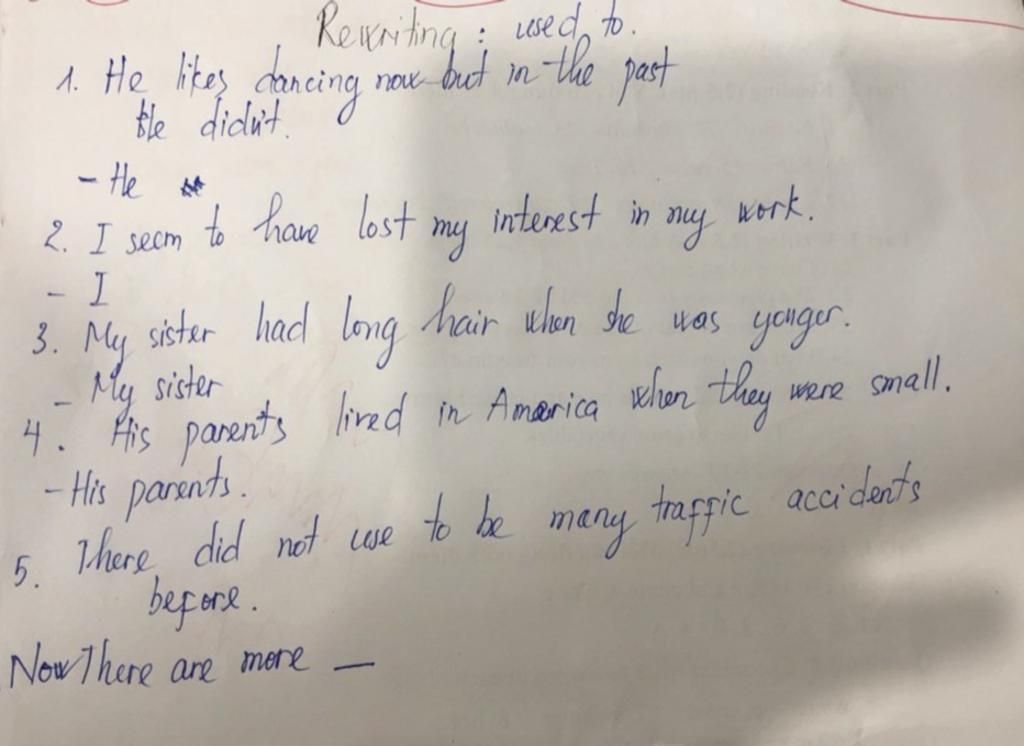 Rewriting : used to.
1. He likes dancing now but in the past
He didn't.
- He
2. I seem to have lost my interest in my work.
- I
3. My sister had long hair when she was yonger.
- My sister
4. His parents lived in America when they were small.
- His parents.
5. There did not use to be many traffic accidents
before.
Now There are more —